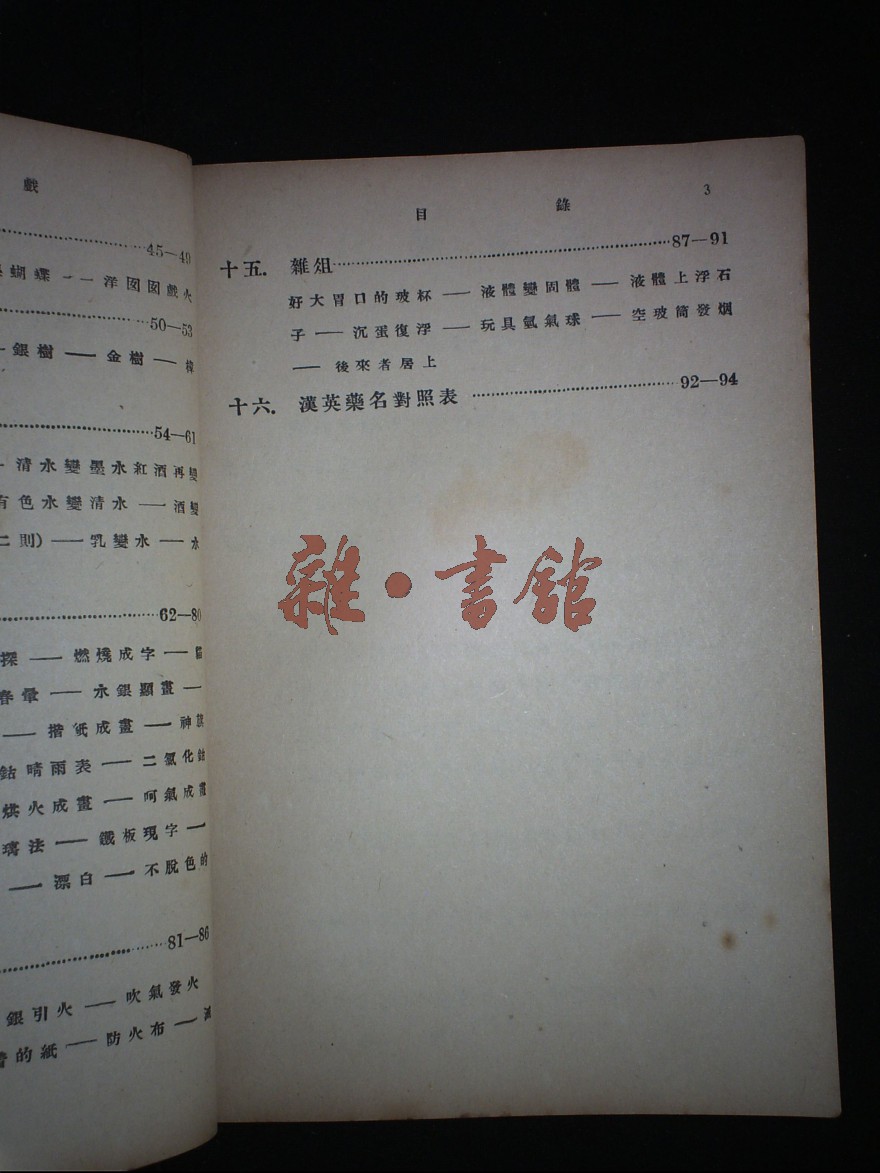 戲
45—49
蝴蝶——洋囡囡戲火
50—53
銀樹——金樹——
54—61
清水變墨水紅酒再變
有色水變清水——酒變
二則)——乳變水——水
62—80
探——燃燒成字——
春暈——水銀顯畫——
——揩紙成畫——神
鈷晴雨表——二氯化鈷
烘火成畫——呵氣成畫
璃法——鐵板現字——
——漂白——不脫色的
81—86
銀引火——吹氣發火
的紙——防火布——
目錄 3
十五. 雜俎 87—91
好大胃口的玻杯——液體變固體——液體上浮石
子——沉蛋復浮——玩具氫氣球——空玻筒發烟
——後來者居上
十六. 漢英藥名對照表 92—94
雜·書館